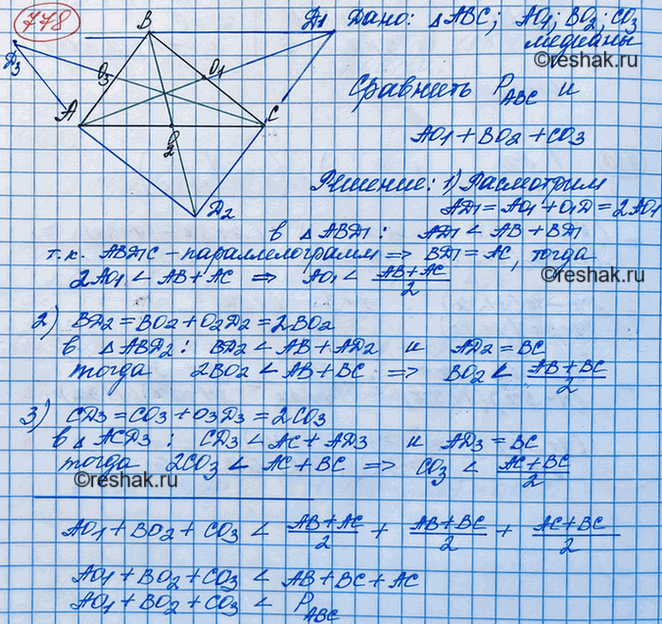 778
B
D1
D3
O3
O1
A
O2
C
D2
Дано: △ABC; AO1; BO2; CO3
медианы
©reshak.ru
Сравнить P_ABC и
AO1+BO2+CO3
Решение: 1) Расмотрим
AD1=AO1+O1D=2AO1
в △ABD1: AD1<AB+BD1
т.к. ABD1C-параллелограмм => BD1=AC, тогда
2AO1<AB+AC => AO1<(AB+AC)/2
©reshak.ru
2) BD2=BO2+O2D2=2BO2
в △ABD2: BD2<AB+AD2 и AD2=BC
тогда 2BO2<AB+BC => BO2<(AB+BC)/2
3) CD3=CO3+O3D3=2CO3
в △ACD3: CD3<AC+AD3 и AD3=BC
тогда 2CO3<AC+BC => CO3<(AC+BC)/2
©reshak.ru
©reshak.ru
AO1+BO2+CO3<(AB+AC)/2+(AB+BC)/2+(AC+BC)/2
AO1+BO2+CO3<AB+BC+AC
AO1+BO2+CO3<P_ABC